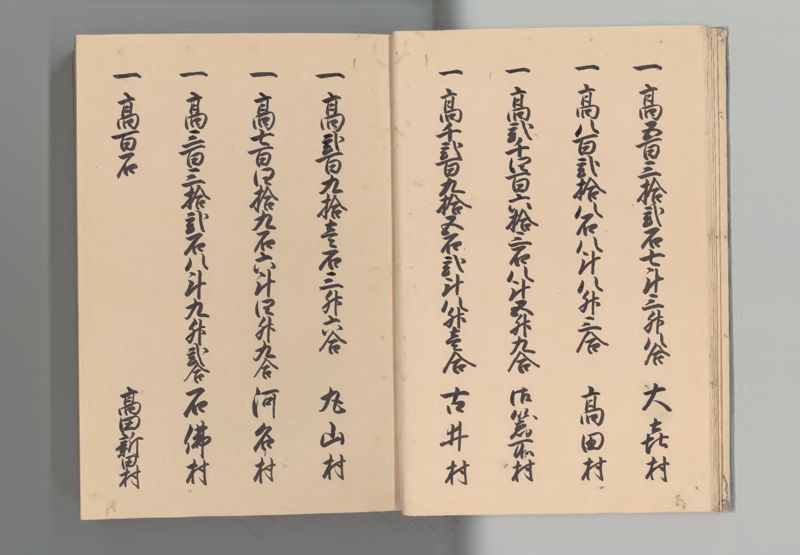 一 高五百三拾弐石七斗三升八合 大喜村
一 高八百弐拾八石八斗八升三合 高田村
一 高弐千四百六拾三石八斗五升九合 御器所村
一 高千弐百九拾五石弐斗八升壱合 古井村
一 高弐百九拾壱石三升六合 丸山村
一 高七百四拾九石六斗四升九合 河名村
一 高三百三拾弐石八斗九升弐合 石佛村
一 高百石 高田新田村